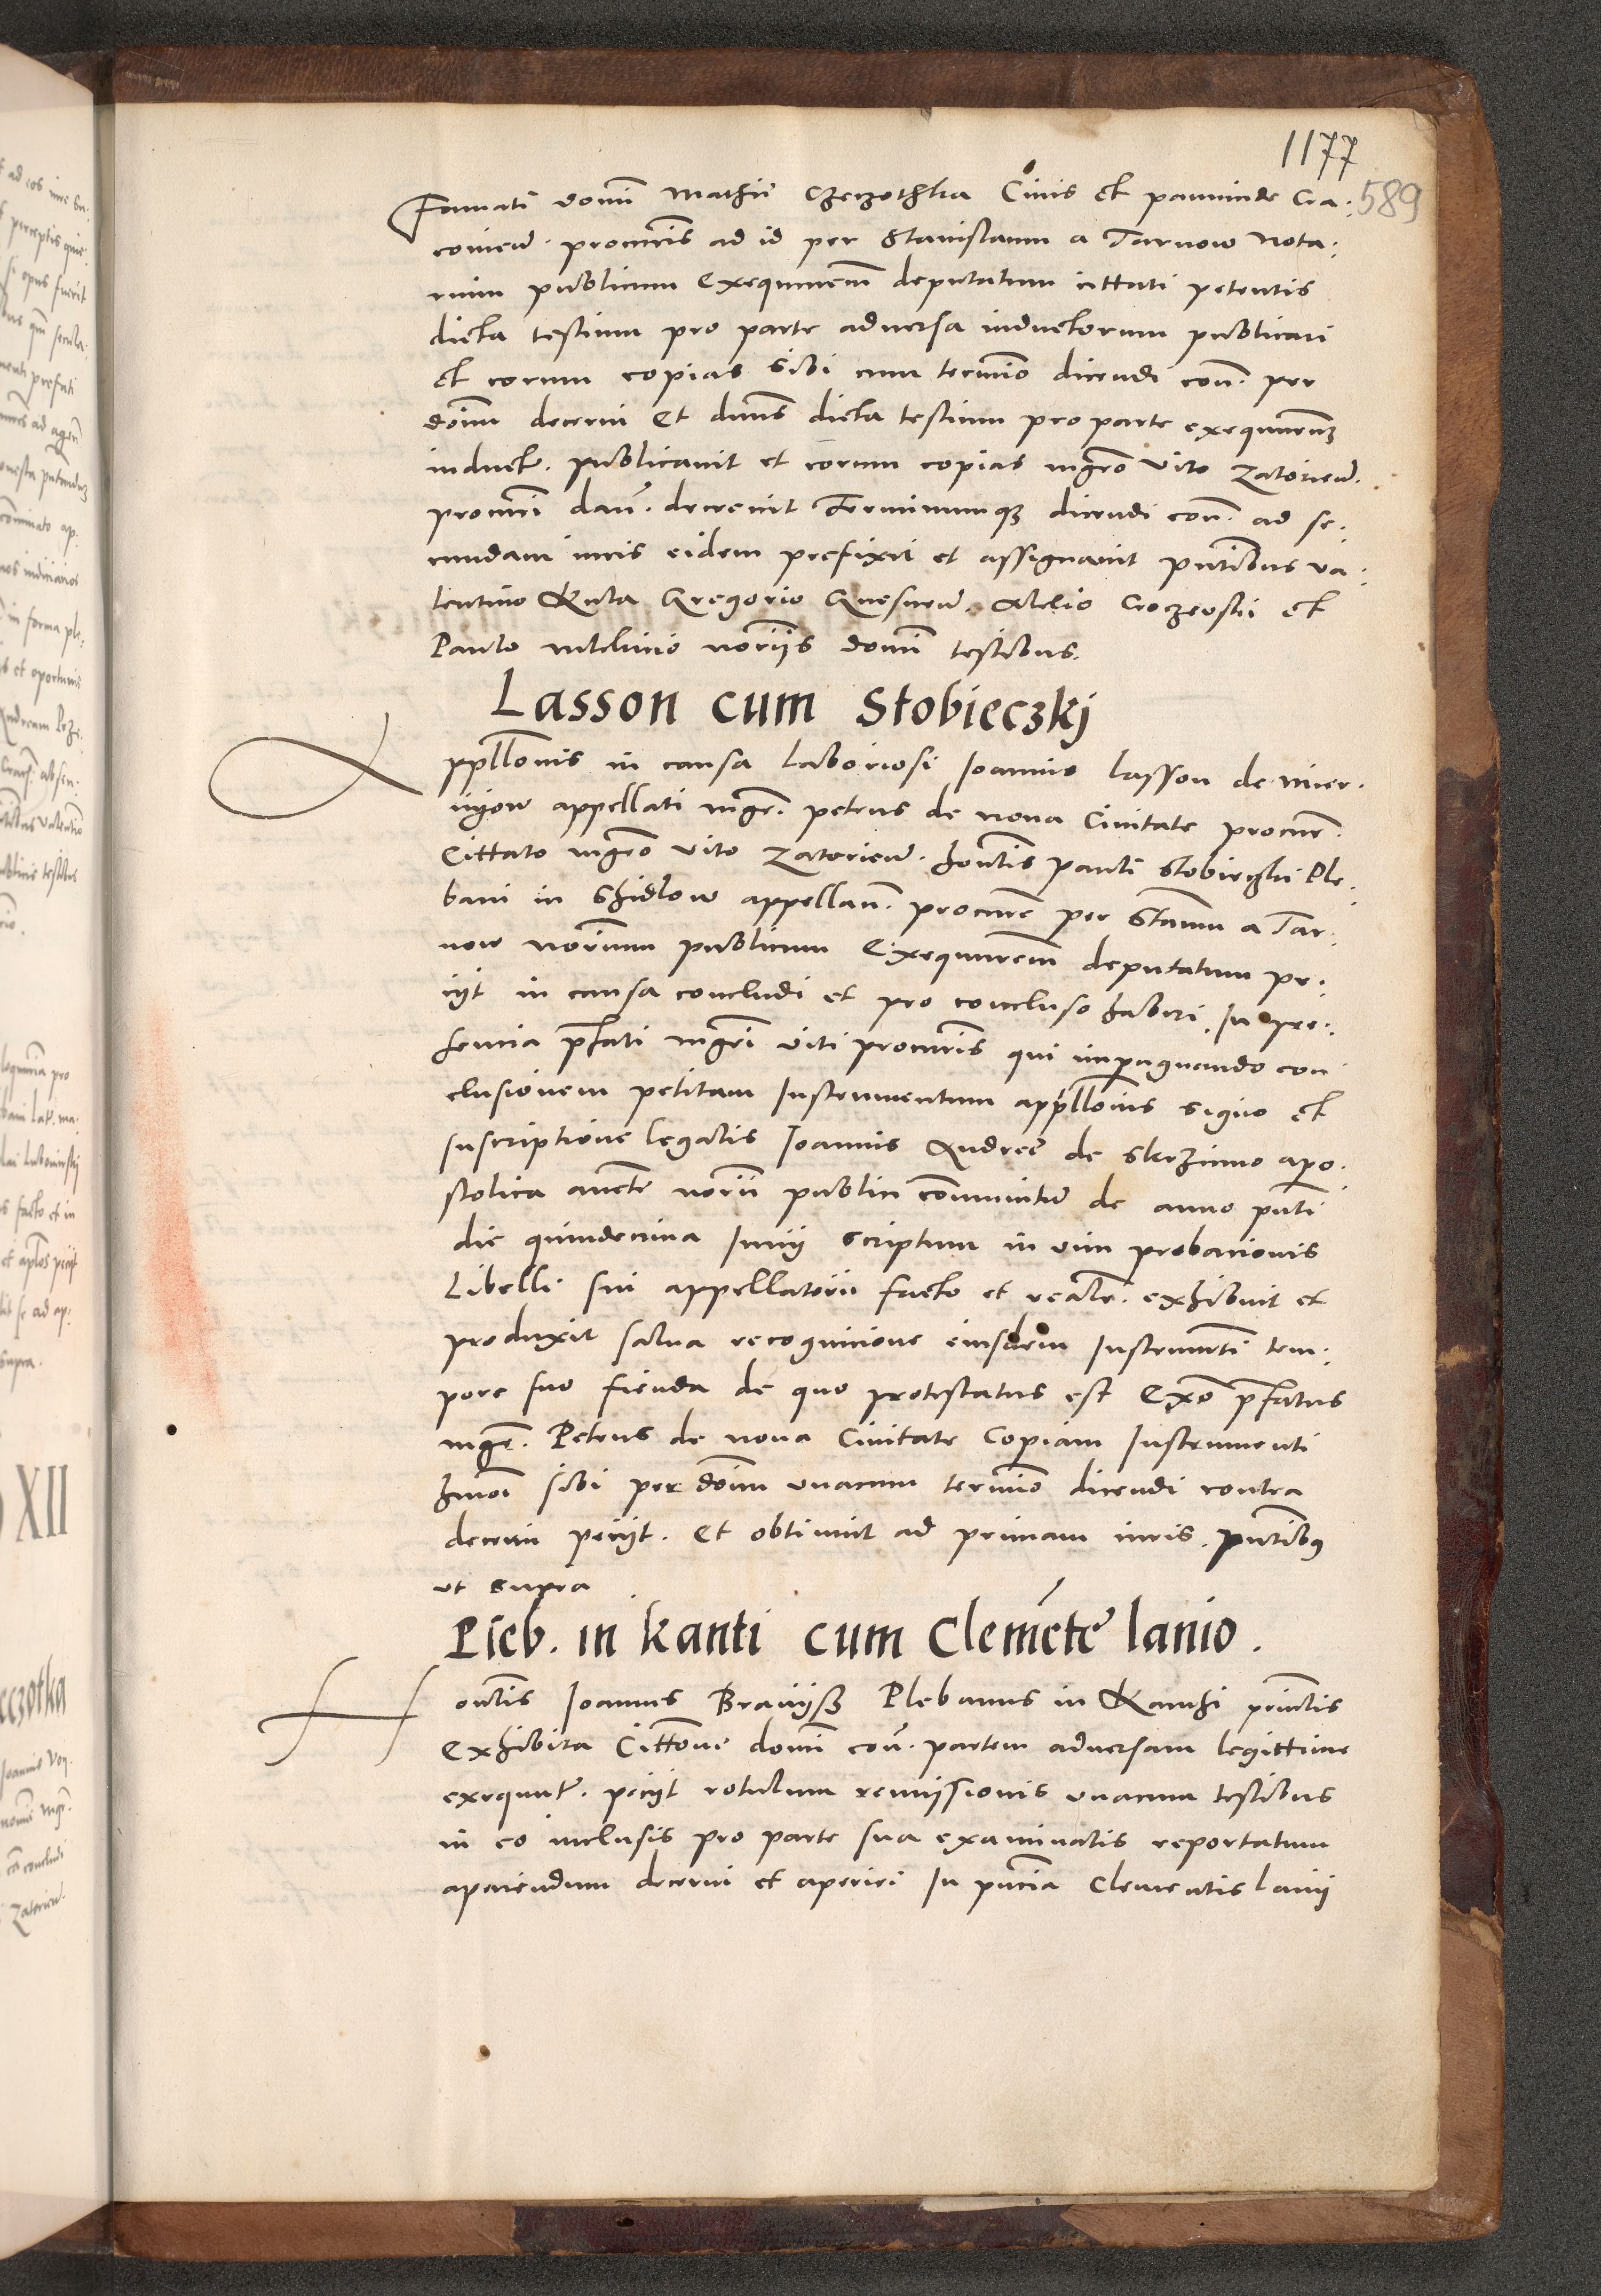 1177
589
Famati domi Mathie Czeczothka Civis et pannicide Cra:
covien. procuris ad id per Stanislaum a Tarnow nota:
rium publicum exequutem deputatum cittati petentis
dicta testium pro parte adversa inductorum publicari
et eorum copias sibi cum termino dicendi con. per
dominum decerni Et dnus dicta testium pro parte exequuten
induct. publicavit et eorum copias mgro Vito Zatorien.
procuri dan. decrevit Terminumque dicendi con. ad se:
cundam iuris eidem prefixit et assignavit pntibus Va:
lentino Kula Gregorio Gnesnen. Alexio et
Paulo notariis domi testibus.
Lasson cum Stobieczkj
Appllonis in causa Laboriosi Joannis Lasson de Mier:
appellati mgr. petrus de nova Civitate procur.
Cittato mgro Vito Zatorien. hontis Pauli Stobieczki Ple:
bani in Shidlow appellan. procure per Stanum a Tar:
now norium publicum Exequutem deputatum pe:
ciit in causa concludi et pro concluso haberi. In pre:
sencia pfati mgri Viti procuris qui impugnando con
clusionem petitam Instrumentum appllonis signo et
suscriptione legalis Joannis Andree de Skrzinno apo:
stolica aucte norii publici communitum de anno pnti
die quindecima Junij scriptum in vim probacionis
Libelli sui appellatorii facto et realr. exhibuit et
produxit salva recognicione eiusdem Instrumenti tem:
pore suo fienda de quo protestatus est Exo pfatus
mgr. Petrus de nova Civitate Copiam Instrumenti
hmoi sibi per dominum unacum termino dicendi contra
decerni peciit. et obtinuit ad primam iuris. pntibus
ut supra
Pleb. in kanti cum Clemete lanio.
Hontis Joannes Plebanus in Kanthi principalis
Exhibita Cittone domi con. partem adversam legittime
exequut. peciit rotulum remissionis unacum testibus
in eo inclusis pro parte sua examinatis reportatum
aperiendum decerni et aperiri In pncia Clementis Lanij